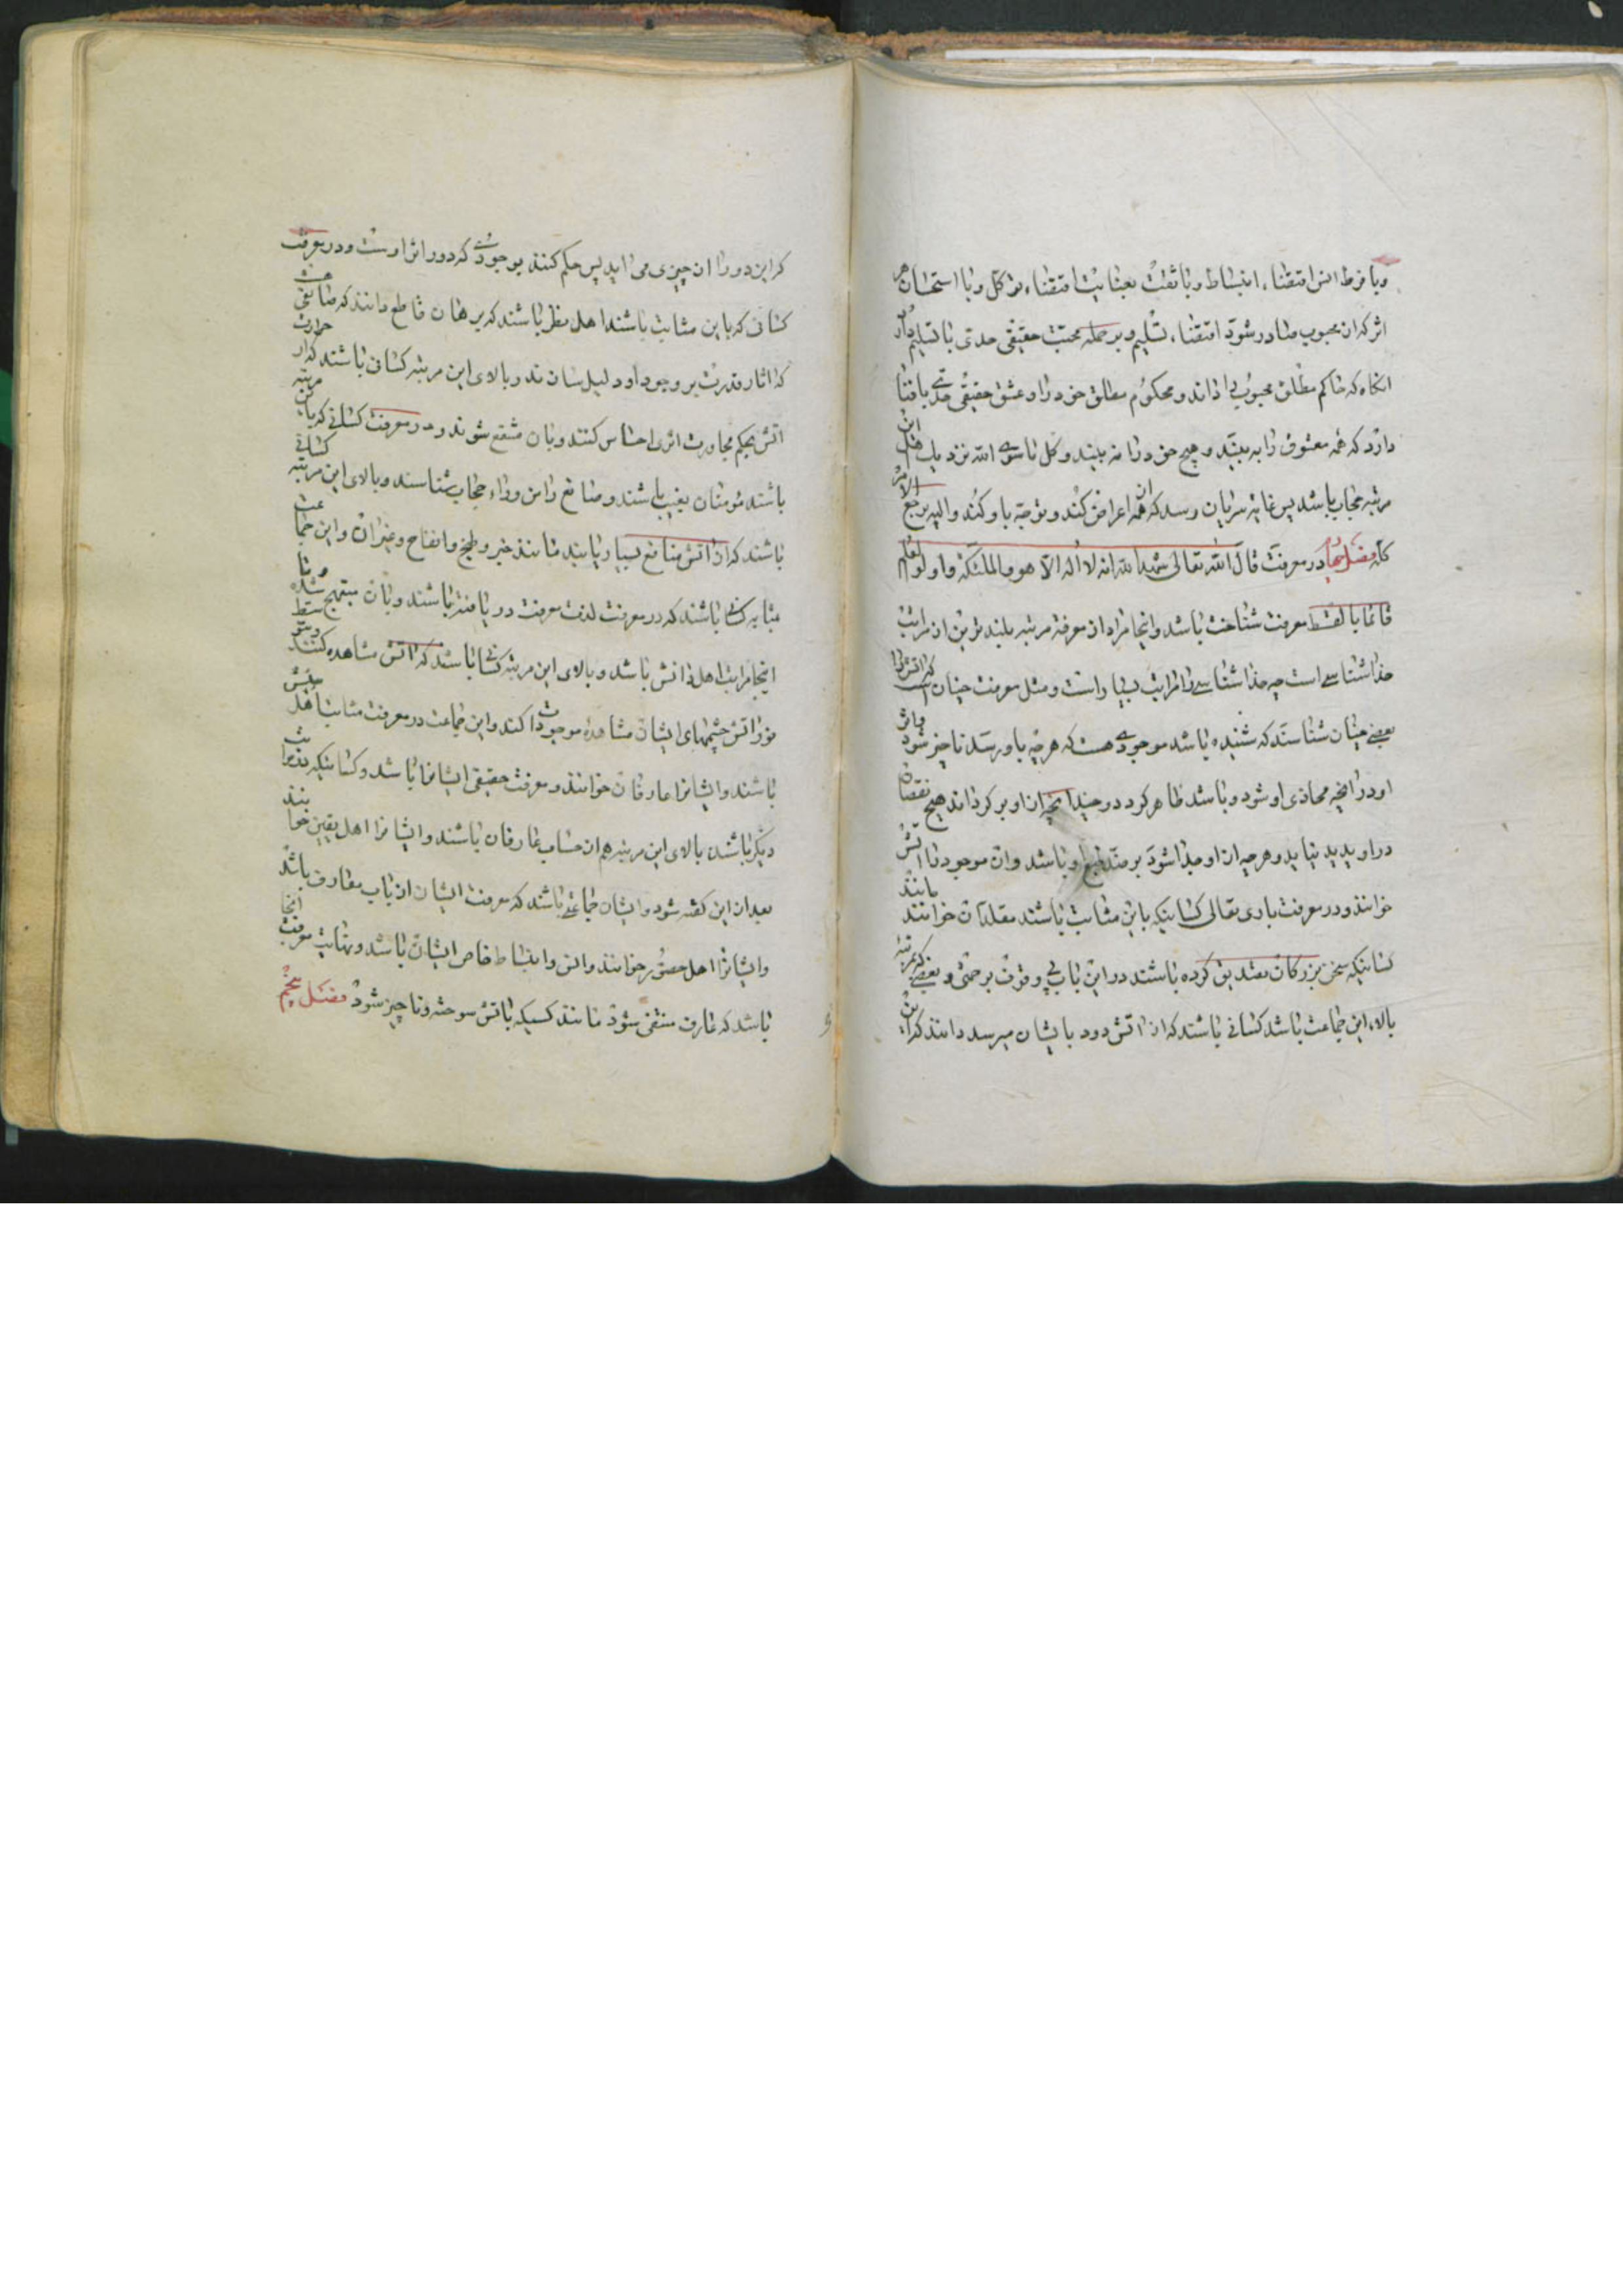 وبا فرط انس اقتضاء انبساط وبا ثقت بعنایت اقتضاء توکل وبا استحسان هر
اثر که ازن محبوب صادر شود اقتضاء تسلیم وبر جمله محبت حقیقی حدی با تسلیم دارد
انکاه که حاکم مطلق محبوب را داند ومحکوم مطلق خود را وعشق حقیقی حدی با فنا
دارد که همه معشوق را به بیند وهیچ خود را نه بیند وکل ما سوی الله نزد یک اهل این
مرتبه حجاب باشد پس غایه سریان رسد که از همه اعراض کند وتوجه باو کند والیه یرجع الامر
کله فصل چهارم در معرفت قال الله تعالی شهد الله انه لا اله الا هو والملئکة واولوا العلم
قائما بالقسط معرفت شناخت باشد واینجا مراد از معرفة مرتبه بلند ترین از مراتب
خدا شناسی است چه خدا شناسی را مراتب بسیار است ومثل معرفت چنان است که اتش را
بعضی چنان شناسند که شنیده باشد موجودی هست که هر چه باو رسد ناچیز شود واثر
او در انچه محاذی او شود وباشد ظاهر کردد وچندانچه از او بر کردانند هیچ نقصان
در او پدید نیاید وهر چه از او جدا شود بر ضد طبع او باشد وان موجود را اتش
خوانند ودر معرفت باری تعالی کسانیکه باین مثابت باشند مقلدان خوانند مانند
کسانیکه سخن بزرکان تصدیق کرده باشند در این باب بی وقوف بر حجتی وبعضی که بمرتبه
بالاء این جماعت باشد کسانی باشند که از اتش دود بایشان میرسد دانند که این
که این دود از ان چیزی می اید پس حکم کنند بوجودی که دود اثر اوست ودر معرفت
کسانی که باین مثابت باشند اهل نظر باشند که برهان قاطع دانند که صانعی هست
که اثار قدرت بر وجود او دلیل سازند وبالای این مرتبه کسانی باشند که از حرارت
اتش بحکم مجاورت اثری احساس کنند وبان منتفع شوند ودر معرفت کسانی که باین مرتبه
باشند مؤمنان بغیب باشند وصانع را من وراء حجاب شناسند وبالای این مرتبه کسانی
باشند که از اتش منافع بسیار یابند مانند خبز وطبخ وانضاج وغیر ان واین جماعت
بمثابه کسانی باشند که در معرفت لذت معرفت در یافته باشند وبان مبتهج شده وتا
اینجا مراتب اهل دانش باشد وبالای این مرتبه کسانی باشد که اتش مشاهده کنند وبتوسط
نور اتش چشمهای ایشان مشاهدهٔ موجودات کند واین جماعت در معرفت مثابت اهل بینش
باشند وایشانرا عارفان خوانند ومعرفت حقیقی ایشانرا باشد وکسانیکه بمراتب
دیکر باشند بالای این مرتبه هم از حساب عارفان باشند وایشانرا اهل یقین خوانند
بعد از این کفته شود وایشان جماعتی باشند که معرفت ایشان از باب معارف باشد
وایشانرا اهل حضور خوانند وانس وانبساط خاص ایشان باشد ونهایت معرفت انجا
باشد که عارف منتفی شود مانند کسیکه باتش سوخته وناچیز شود فصل پنجم